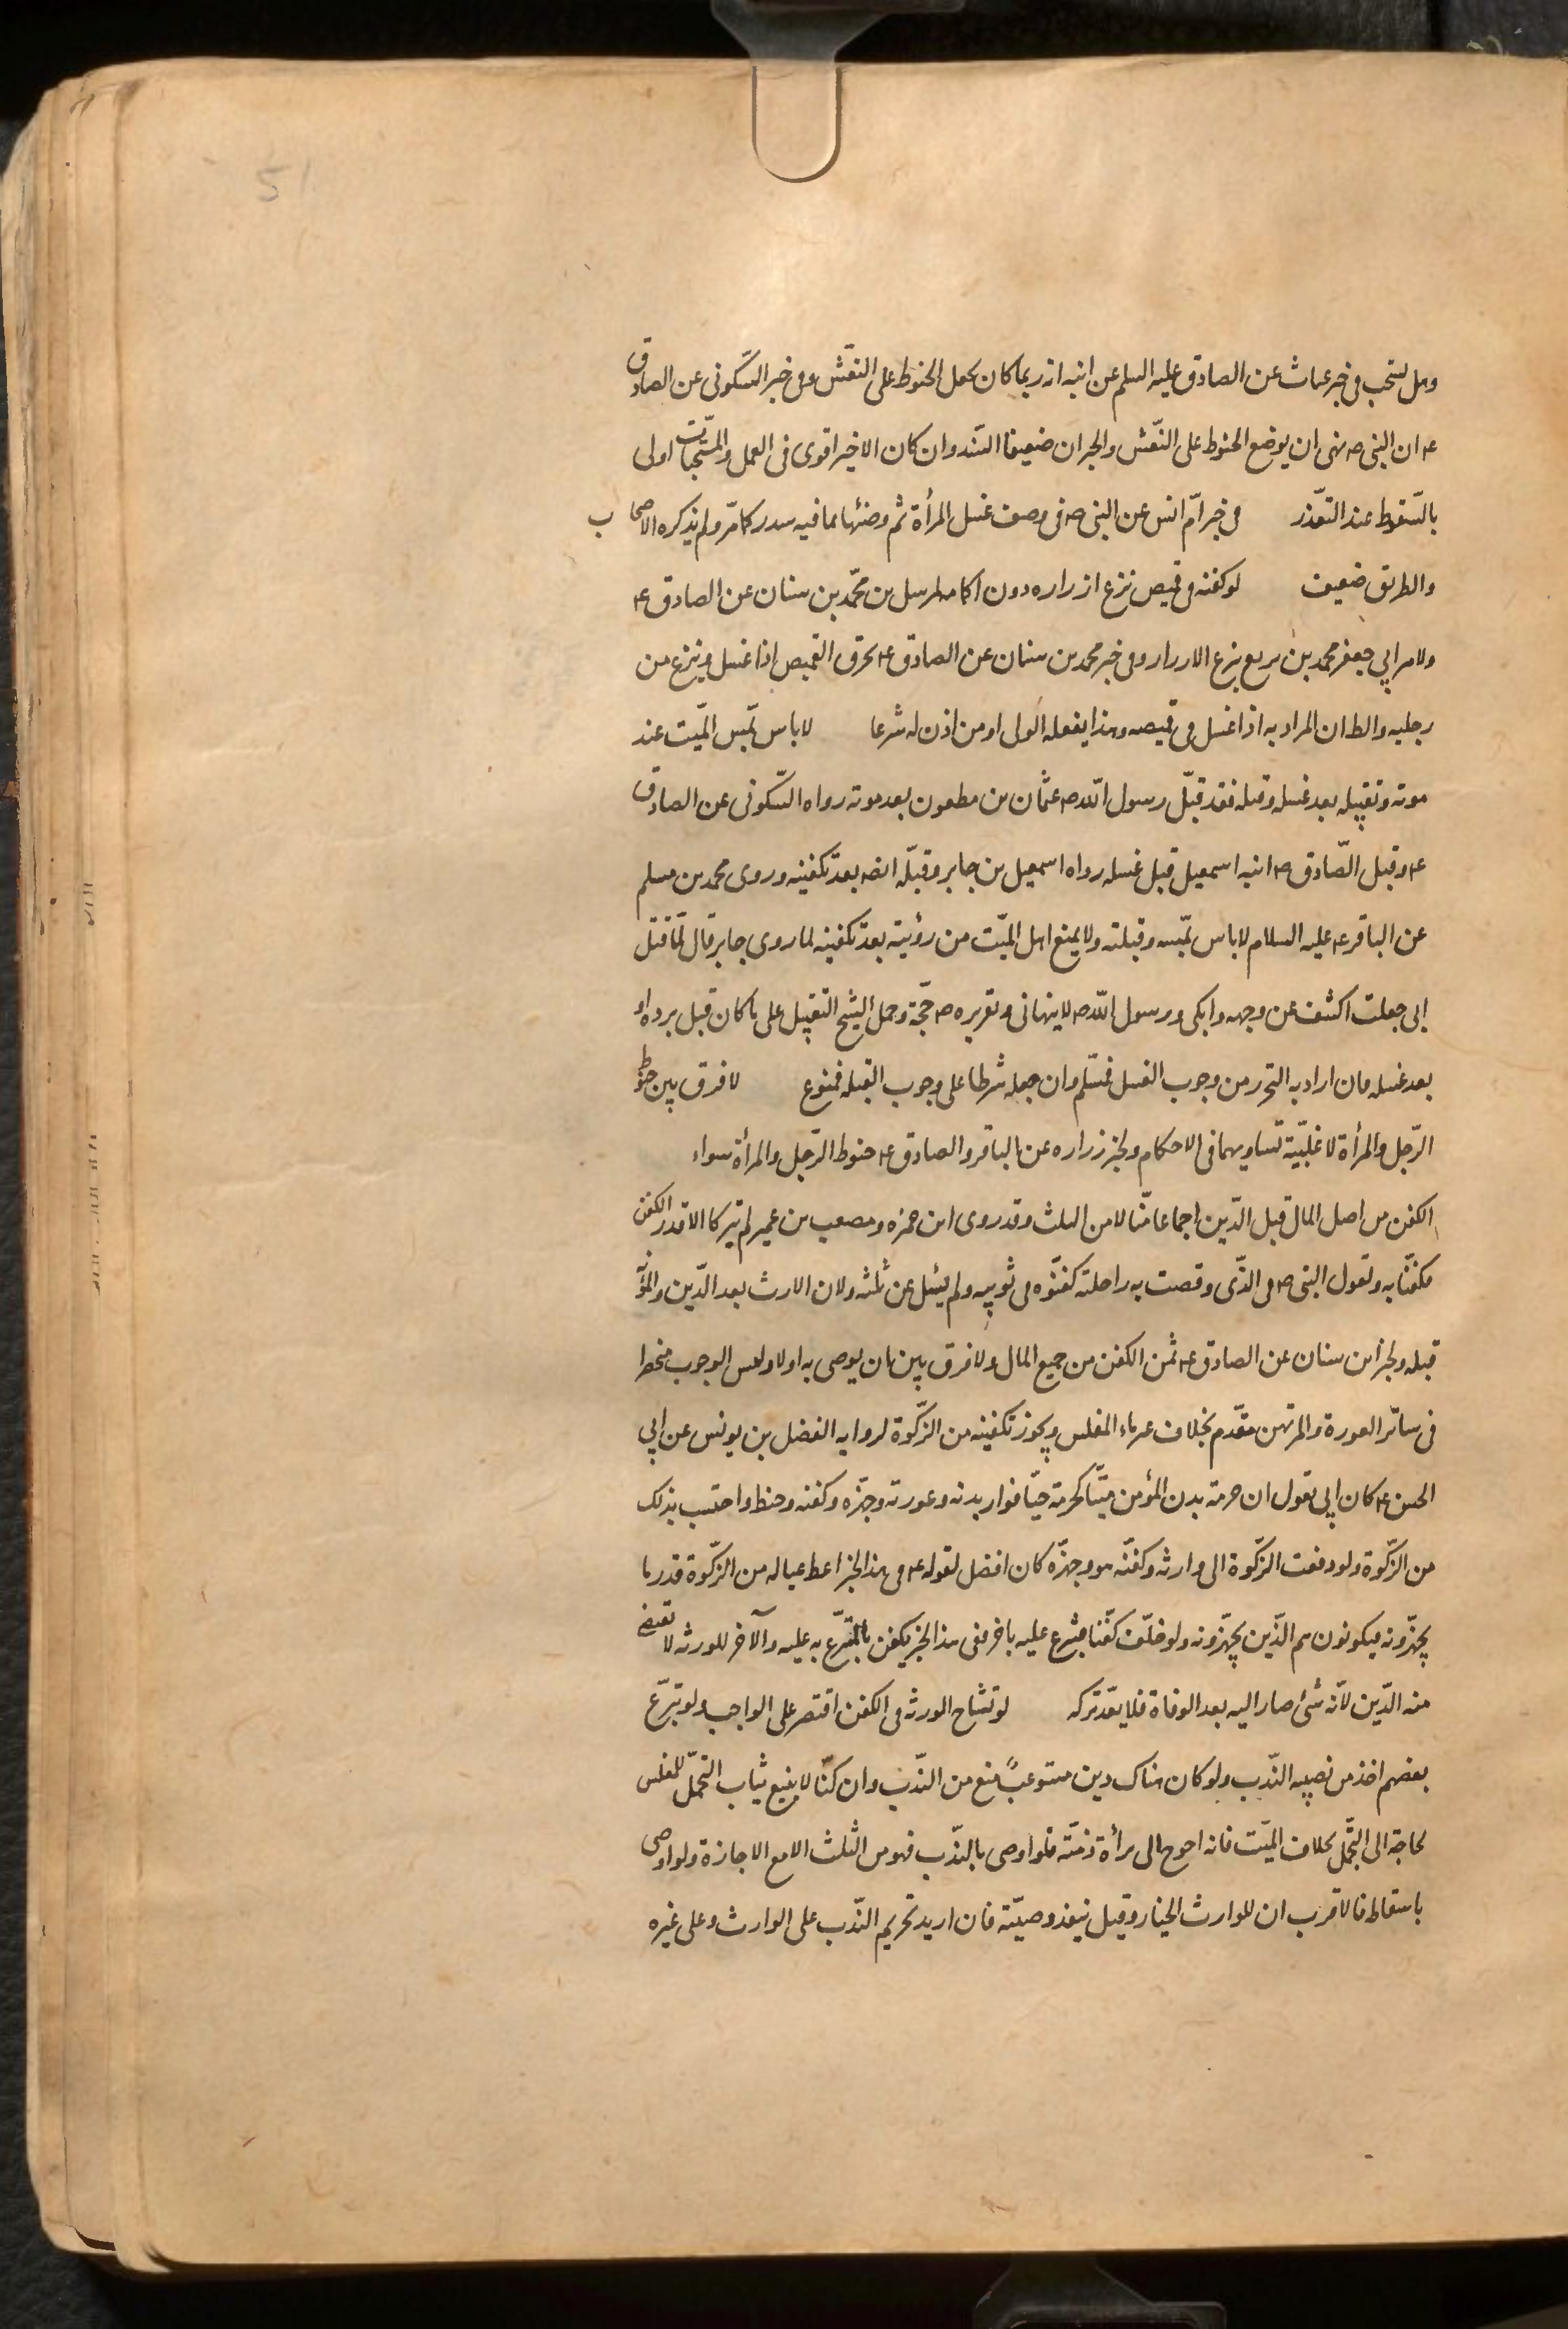 51
وهل يستحب في خبر غياث عن الصادق عليه السلم عن ابيه انه ربما كان يجعل الحنوط على النعش وفي خبر السكونى عن الصادق
ع ان النبى ص نهى ان يوضع الحنوط على النعش والخبران ضعيفا السند وان كان الاخير اقوى فى العمل والمستحبات اولى
بالسقوط عند التعذر فى خبر ام انس عن النبى ص فى وصف غسل المرأة ثم وضئها بما فيه سدر كما مر ولم يذكره الاصحاب
والطريق ضعيف لو كفنه فى قميص نزع ازراره دون اكمامه لمرسل بن محمد بن سنان عن الصادق ع
ولامر ابي جعفر محمد بن بزيع بنزع الازرار وفى خبر محمد بن سنان عن الصادق ع يخرق القميص اذا غسل وينزع من
رجليه والظ ان المراد به اذا غسل فى قميصه وهذا يفعله الولى او من اذن له شرعا لا باس بمس الميت عند
موته وتقبيله بعد غسله وقبله فقد قبل رسول الله ص عثمان بن مظعون بعد موته رواه السكونى عن الصادق
ع وقبل الصادق ع ابنه اسمعيل قبل غسله رواه اسمعيل بن جابر وقبله ايضا بعد تكفينه وروى محمد بن مسلم
عن الباقر ع عليه السلام لا باس بمسه وقبلته ولا يمنع اهل الميت من رؤيته بعد تكفينه لما روى جابر قال لما قتل
ابى جعلت اكشف عن وجهه وابكى ورسول الله ص لا ينهانى وتقريره ص حجة وحمل الشيخ التقبيل على ما كان قبل برده او
بعد غسله فان اراد به التحرز من وجوب الغسل فمسلم وان جعله شرطا على وجوب القبله فممنوع لا فرق بين حنوط
الرجل والمرأة لاغلبية تساويهما فى الاحكام ولخبر زراره عن الباقر والصادق ع حنوط الرجل والمرأة سواء
الكفن من اصل المال قبل الدين اجماعا منا لا من الثلث وقد روى ان حمزه ومصعب بن عمير لم يتركا الا قدر الكفن
فكفنا به ولقول النبى ص فى الذى وقصت به راحلته كفنوه فى ثوبيه ولم يسئل عن ثلثه ولان الارث بعد الدين والمؤنة
قبله ولخبر ابن سنان عن الصادق ع ثمن الكفن من جميع المال ولا فرق بين ان يوصى به او لا وليس الوجوب منحصرا
فى ساتر العورة والمرتهن مقدم بخلاف غرماء المفلس ويجوز تكفينه من الزكوة لروايه الفضل بن يونس عن ابي
الحسن ع كان ابي يقول ان حرمة بدن المؤمن ميتا كحرمته حيا فوار بدنه وعورته وجهزه وكفنه وحنطه واحتسب بذلك
من الزكوة ولو دفعت الزكوة الى وارثه وكفنه هو وجهزه كان افضل لقوله ع فى هذا الخبر اعط عياله من الزكوة قدر ما
يجهزونه فيكونون هم الذين يجهزونه ولو خلف كفنا فتبرع عليه باخر ففى هذا الخبر يكفن بالمتبرع به عليه والآخر للورثه لا تقضى
منه الدين لانه شئ صار اليه بعد الوفاة فلا يعد تركه لو تشاح الورثه فى الكفن اقتصر على الواجب ولو تبرع
بعضهم اخذ من نصيبه الندب ولو كان هناك دين مستوعب منع من الندب وان كنا لا نبيع ثياب التجمل للمفلس
لحاجته الى التجمل بخلاف الميت فانه احوج الى برأة ذمته فلو اوصى بالندب فهو من الثلث الا مع الاجازة ولو اوصى
باسقاطه فالاقرب ان للوارث الخيار وقيل ينفذ وصيته فان اريد تحريم الندب على الوارث وعلى غيره